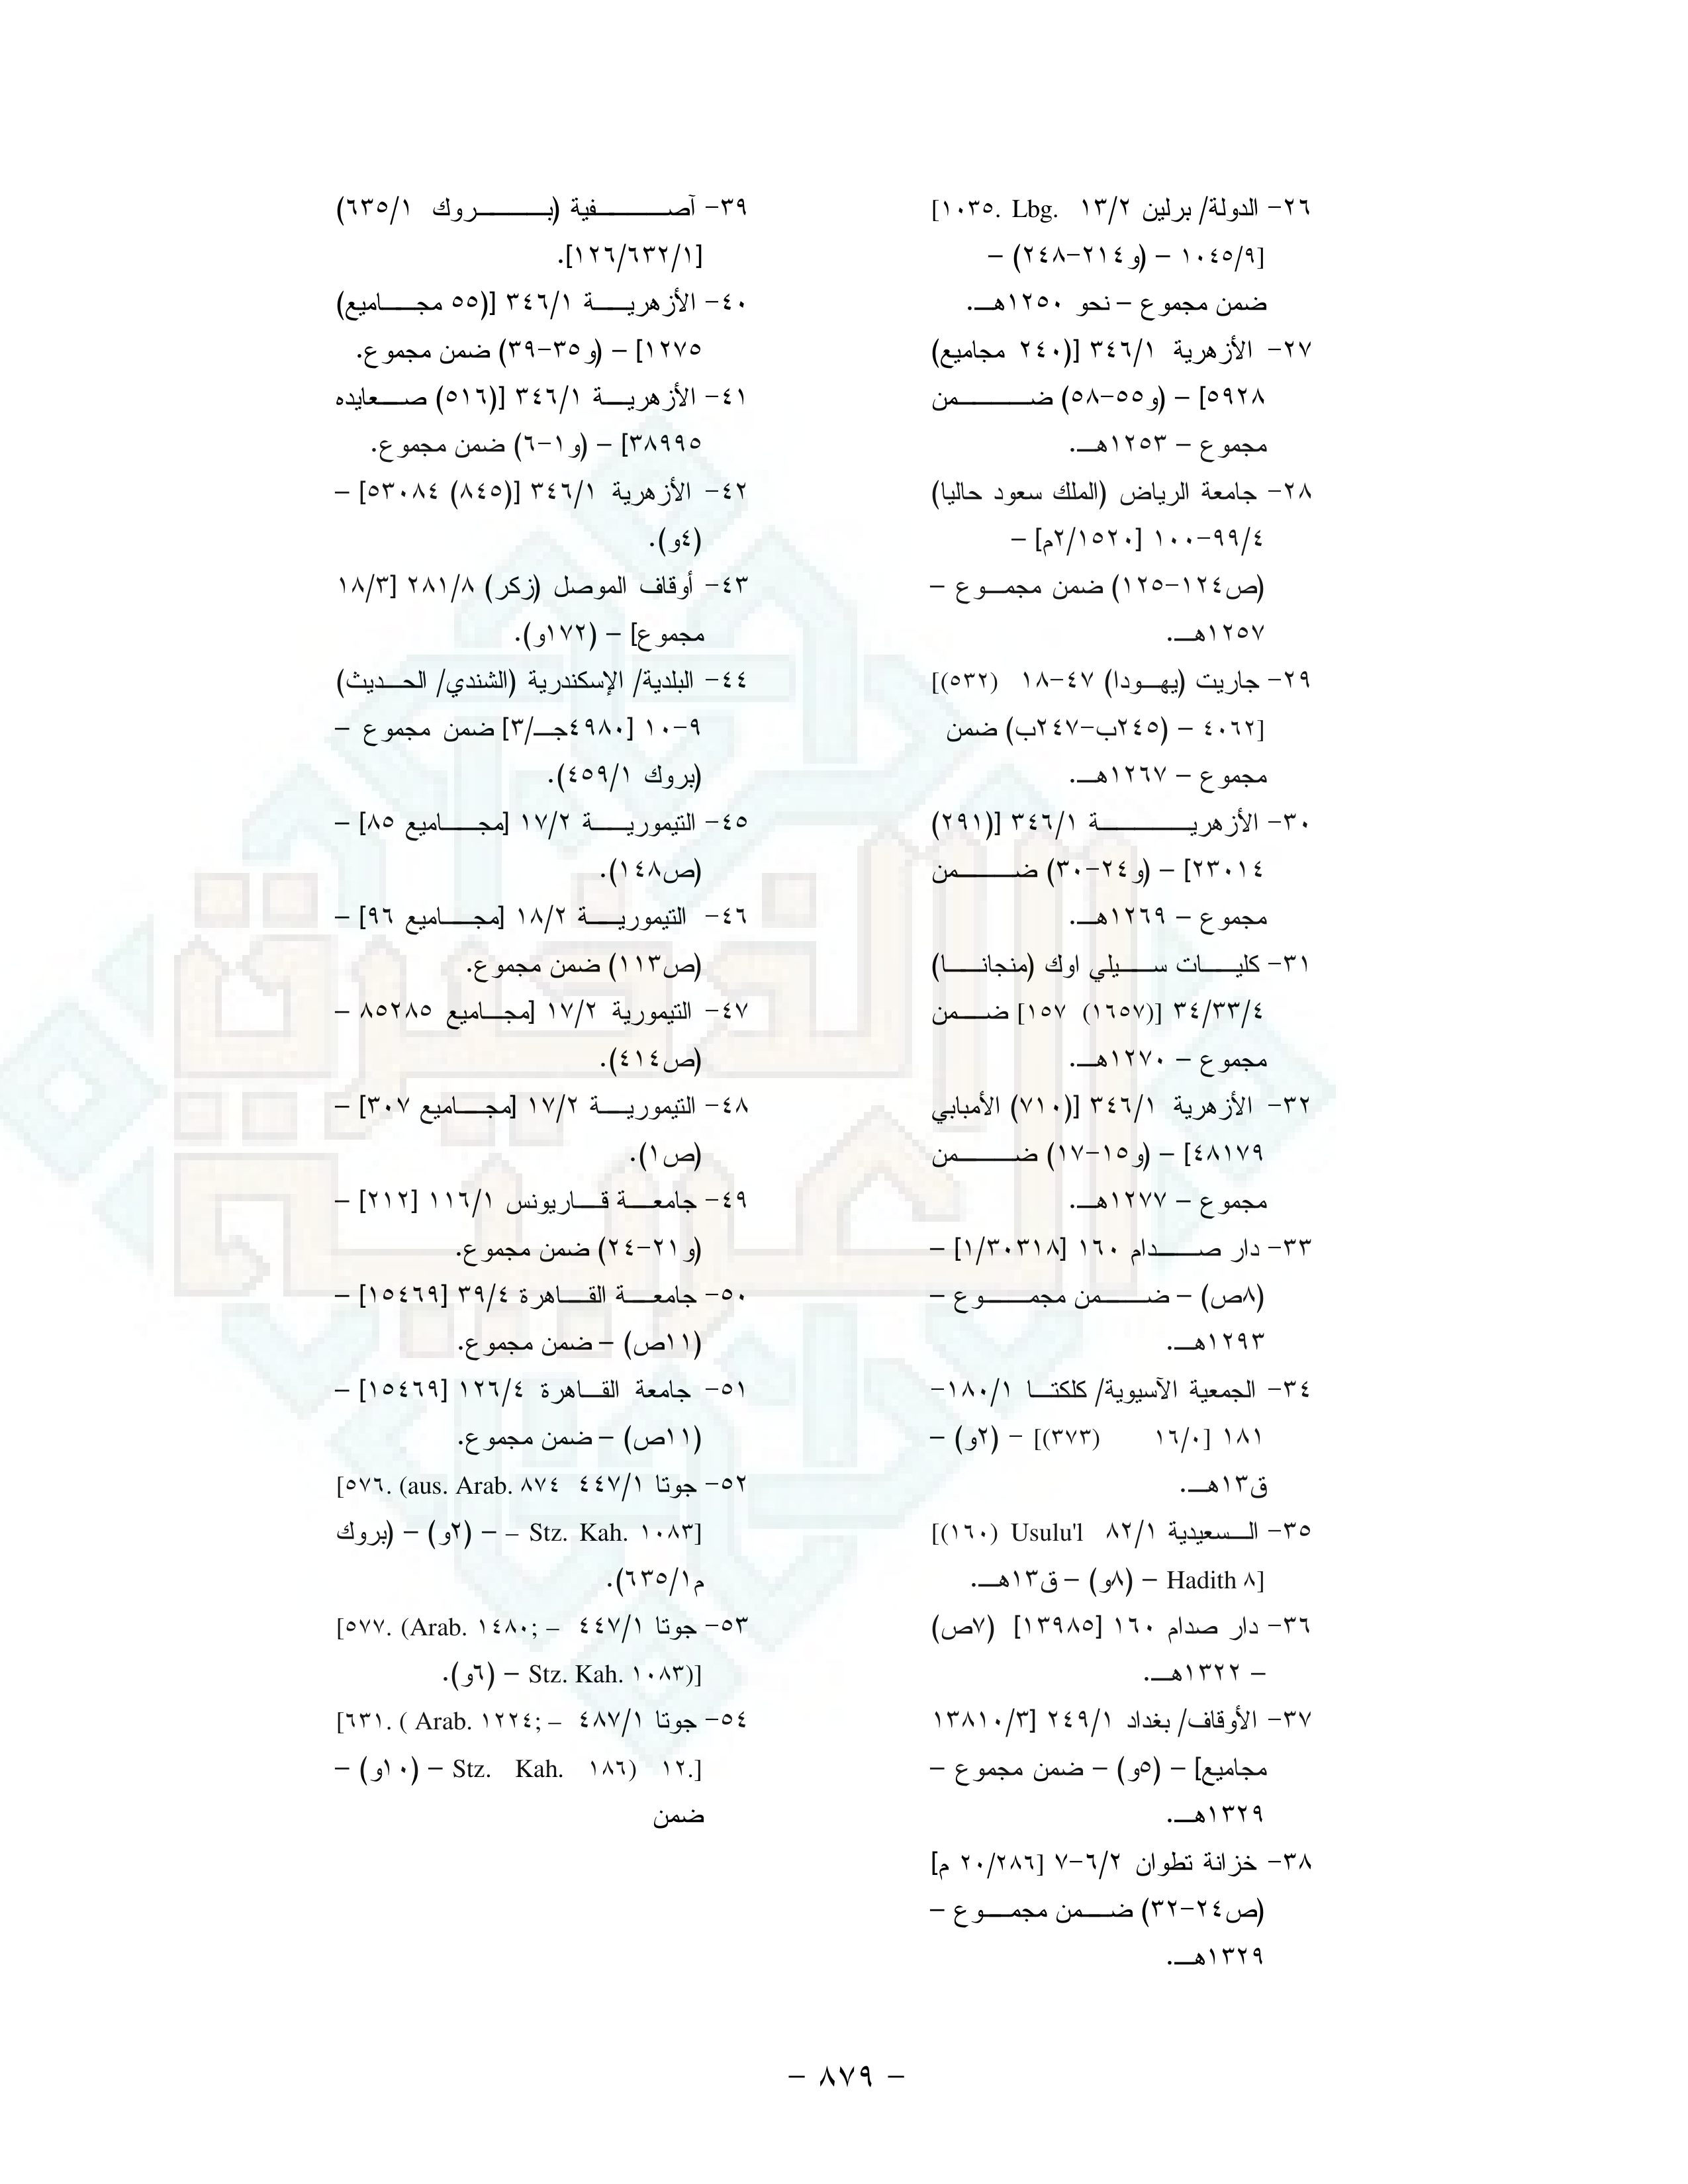 ٢٦- الدولة/ برلين ١٣/٢ [١٠٣٥. Lbg.
١٠٤٥/٩] – (و٢١٤-٢٤٨) –
ضمن مجموع – نحو ١٢٥٠هـ.
٢٧- الأزهرية ٣٤٦/١ [(٢٤٠ مجاميع)
٥٩٢٨] – (و٥٥-٥٨) ضمن
مجموع – ١٢٥٣هـ.
٢٨- جامعة الرياض (الملك سعود حاليا)
٩٩/٤-١٠٠ [٢/١٥٢٠م] –
(ص١٢٤-١٢٥) ضمن مجموع –
١٢٥٧هـ.
٢٩- جاريت (يهودا) ٤٧-١٨ [(٥٣٢)
٤٠٦٢] – (٢٤٥ب-٢٤٧ب) ضمن
مجموع – ١٢٦٧هـ.
٣٠- الأزهرية ٣٤٦/١ [(٢٩١)
٢٣٠١٤] – (و٢٤-٣٠) ضمن
مجموع – ١٢٦٩هـ.
٣١- كليات سيلي اوك (منجانا)
٣٤/٣٣/٤ [(١٦٥٧) ١٥٧] ضمن
مجموع – ١٢٧٠هـ.
٣٢- الأزهرية ٣٤٦/١ [(٧١٠) الأمبابي
٤٨١٧٩] – (و١٥-١٧) ضمن
مجموع – ١٢٧٧هـ.
٣٣- دار صدام ١٦٠ [١/٣٠٣١٨] –
(٨ص) – ضمن مجموع –
١٢٩٣هـ.
٣٤- الجمعية الآسيوية/ كلكتا ١٨٠/١-
١٨١ [١٦/٠ (٣٧٣)] – (٢و) –
ق١٣هـ.
٣٥- السعيدية ٨٢/١ [(١٦٠) Usulu'l
Hadith ٨] – (٨و) – ق١٣هـ.
٣٦- دار صدام ١٦٠ [١٣٩٨٥] (٧ص)
– ١٣٢٢هـ.
٣٧- الأوقاف/ بغداد ٢٤٩/١ [١٣٨١٠/٣
مجاميع] – (٥و) – ضمن مجموع –
١٣٢٩هـ.
٣٨- خزانة تطوان ٦/٢-٧ [٢٠/٢٨٦ م]
(ص٢٤-٣٢) ضمن مجموع –
١٣٢٩هـ.
٣٩- آصفية (بروك ٦٣٥/١)
[١٢٦/٦٣٢/١].
٤٠- الأزهرية ٣٤٦/١ [(٥٥ مجاميع)
١٢٧٥] – (و٣٥-٣٩) ضمن مجموع.
٤١- الأزهرية ٣٤٦/١ [(٥١٦) صعايده
٣٨٩٩٥] – (و١-٦) ضمن مجموع.
٤٢- الأزهرية ٣٤٦/١ [(٨٤٥) ٥٣٠٨٤] –
(٤و).
٤٣- أوقاف الموصل (زكر) ٢٨١/٨ [١٨/٣
مجموع] – (١٧٢و).
٤٤- البلدية/ الإسكندرية (الشندي/ الحديث)
٩-١٠ [٤٩٨٠جـ/٣] ضمن مجموع –
(بروك ٤٥٩/١).
٤٥- التيمورية ١٧/٢ [مجاميع ٨٥] –
(ص١٤٨).
٤٦- التيمورية ١٨/٢ [مجاميع ٩٦] –
(ص١١٣) ضمن مجموع.
٤٧- التيمورية ١٧/٢ [مجاميع ٨٥٢٨٥ –
(ص٤١٤).
٤٨- التيمورية ١٧/٢ [مجاميع ٣٠٧] –
(ص١).
٤٩- جامعة قاريونس ١١٦/١ [٢١٢] –
(و٢١-٢٤) ضمن مجموع.
٥٠- جامعة القاهرة ٣٩/٤ [١٥٤٦٩] –
(١١ص) – ضمن مجموع.
٥١- جامعة القاهرة ١٢٦/٤ [١٥٤٦٩] –
(١١ص) – ضمن مجموع.
٥٢- جوتا ٤٤٧/١ [٥٧٦. (aus. Arab. ٨٧٤
– Stz. Kah. ١٠٨٣] – (٢و) – (بروك
م٦٣٥/١).
٥٣- جوتا ٤٤٧/١ [٥٧٧. (Arab. ١٤٨٠; –
Stz. Kah. ١٠٨٣)] – (٦و).
٥٤- جوتا ٤٨٧/١ [٦٣١. ( Arab. ١٢٢٤; –
Stz. Kah. ١٨٦) ١٢.] – (١٠و) –
ضمن
– ٨٧٩ –
الذخيرة
العربية